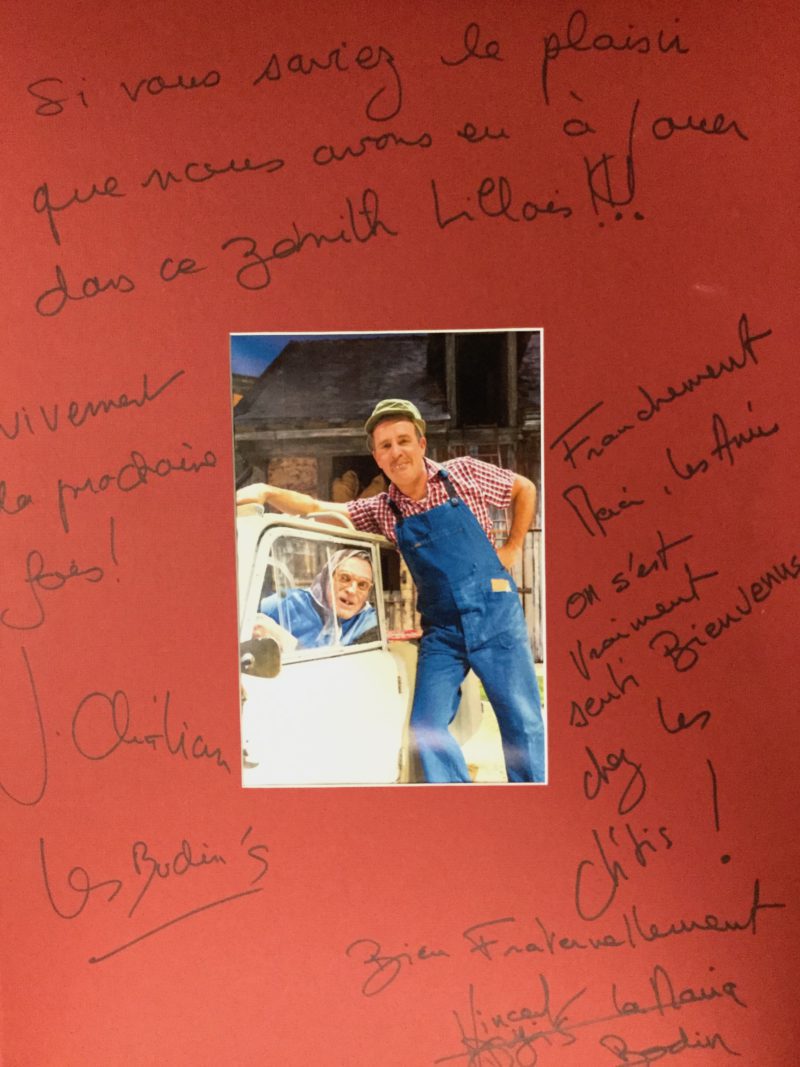 Si vous saviez le plaisir
que nous avons eu à jouer
dans ce Zénith Lillois !!!
vivement
la prochaine
fois !
J. Christian
Les Bodin's
Franchement
Merci, les Amis
on s'est
vraiment
senti Bienvenus
chez les
Ch'tis !
Bien Fraternellement
Vincent La Maria
Bodin